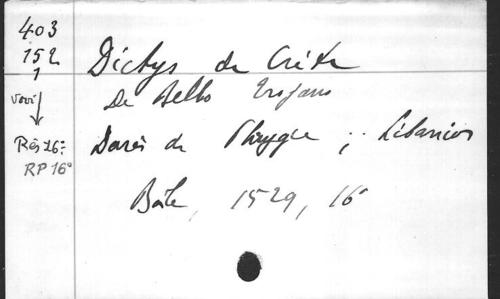 403
152
1
Dictys de Crète
De Bello Trojano
voir
Rés 16º
RP 16º
Darès de Phrygie ; Libanios
Bâle, 1529, 16º